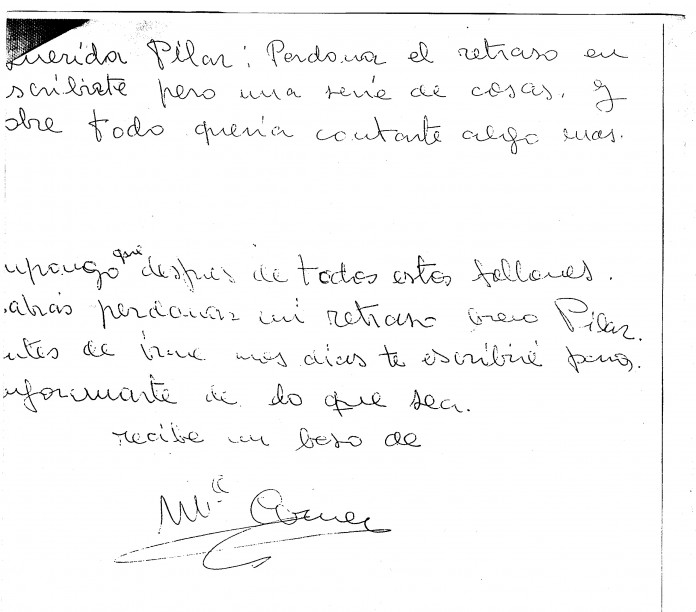 Querida Pilar: Perdona el retraso en
scribirte pero una serie de cosas. y
obre todo quería contarte algo mas.
upongo que despues de todos estos follones.
abrás perdonar mi retraso Pilar.
ntes de irme unos dias te escribiré para
nformarte de lo que sea.
recibe un beso de
Mª